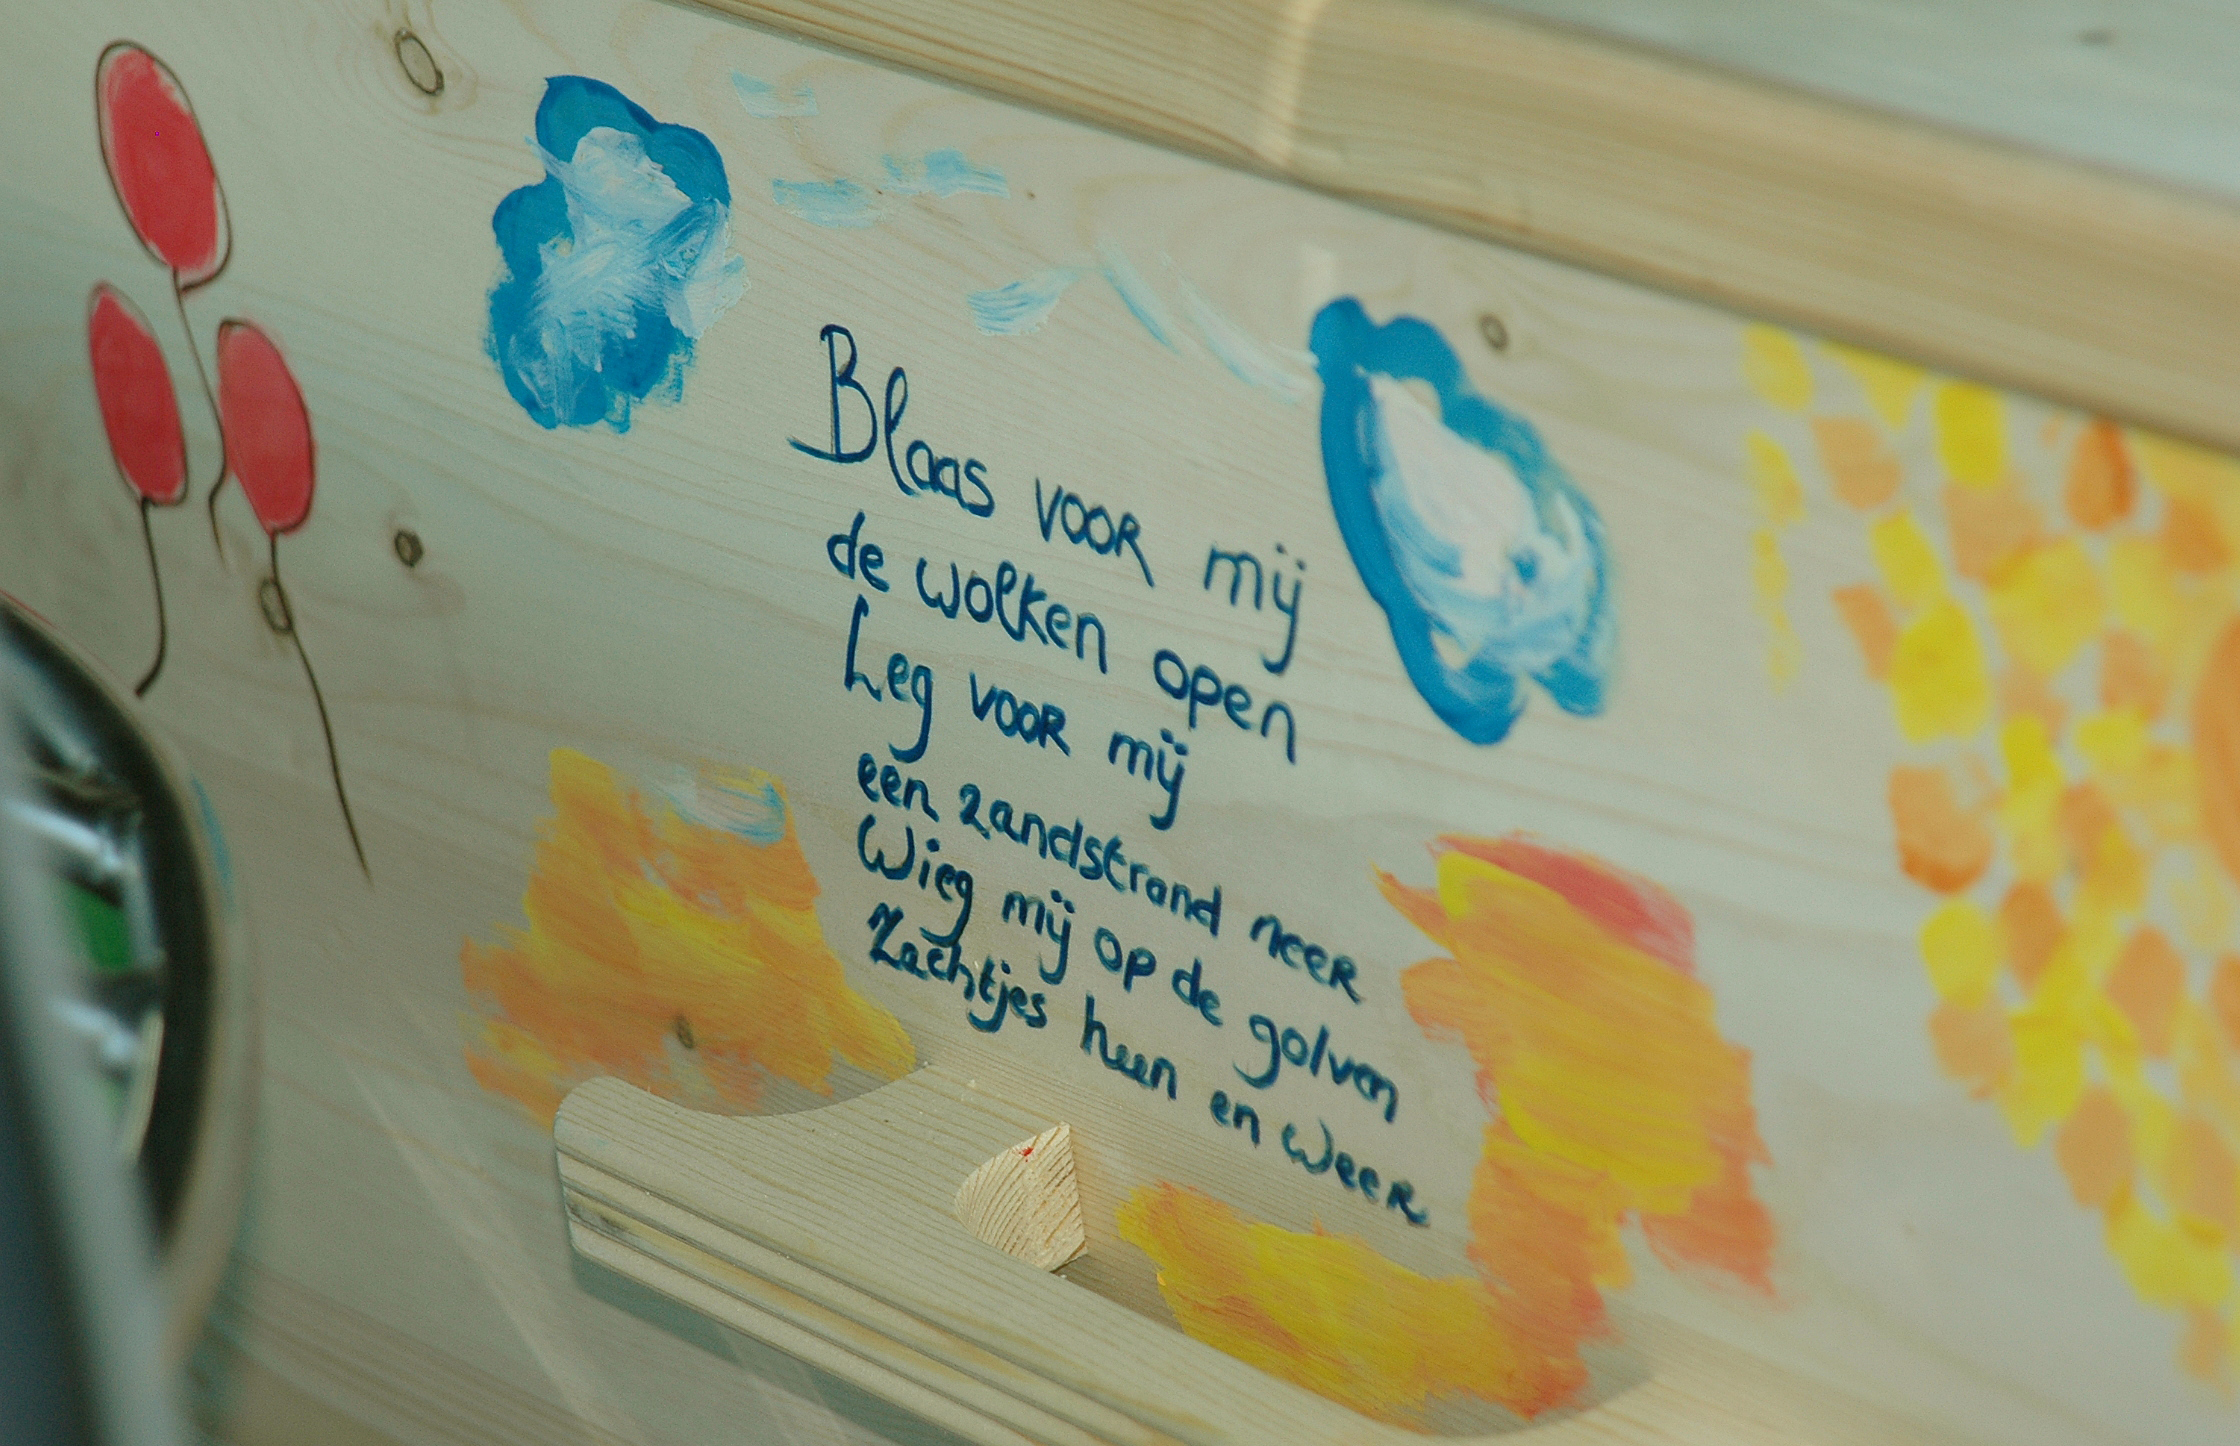 Blaas voor mij
de wolken open
Leg voor mij
een zandstrand neer
Wieg mij op de golven
Zachtjes heen en weer